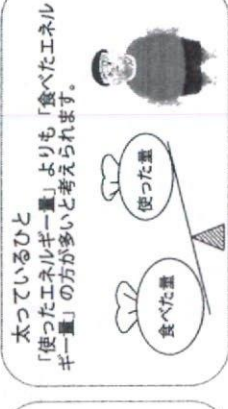 太っているひと
「使ったエネルギー量」よりも「食べたエネル
ギー量」の方が多いと考えられます。
食べた量
使った量